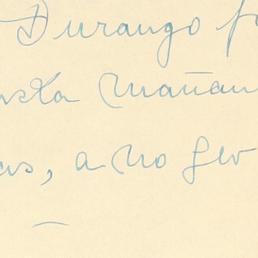 Durango
mañan
, a no ser